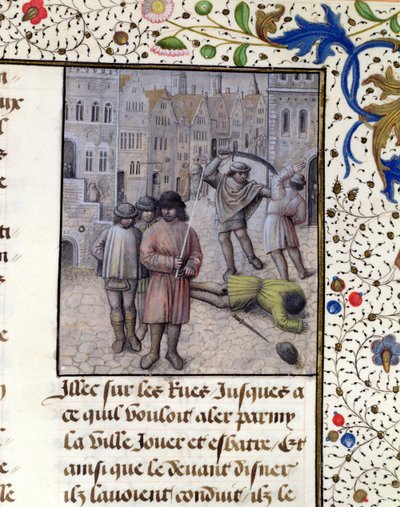 Illec sur les Rues Jusques a
ce quil vouloit aler parmy
la ville Jouer et esbatre / Et
ainsi que le devant disner
ilz lavoient conduit / ilz le